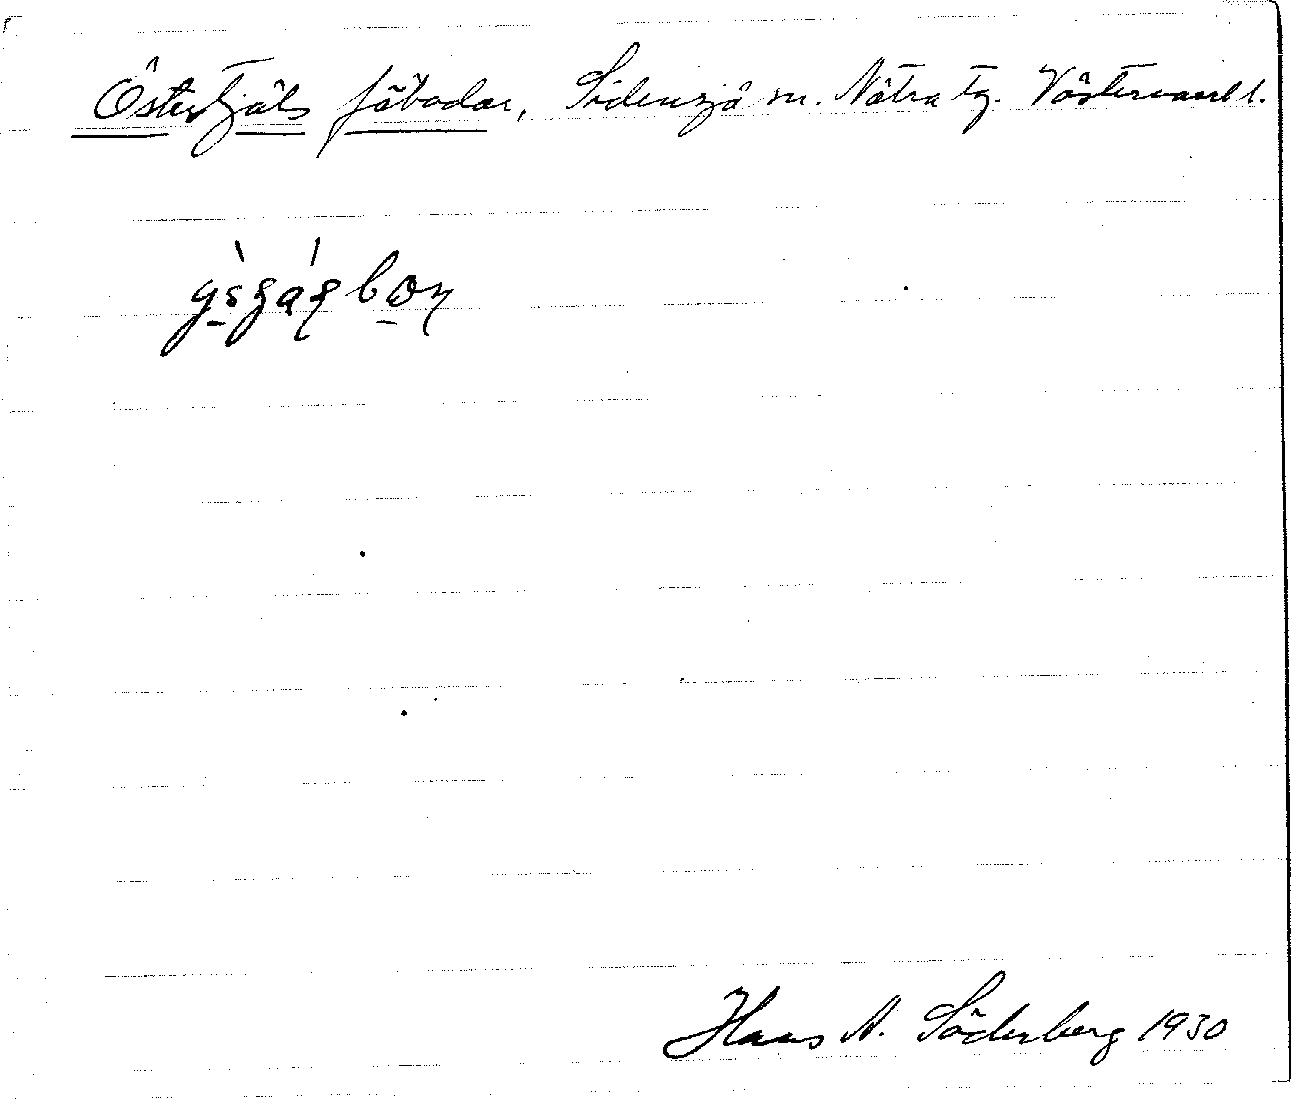 Östertjäls fäbodar, Sidensjö sn. Nätra tg. Västernorrl l.
Hans A. Söderberg 1930